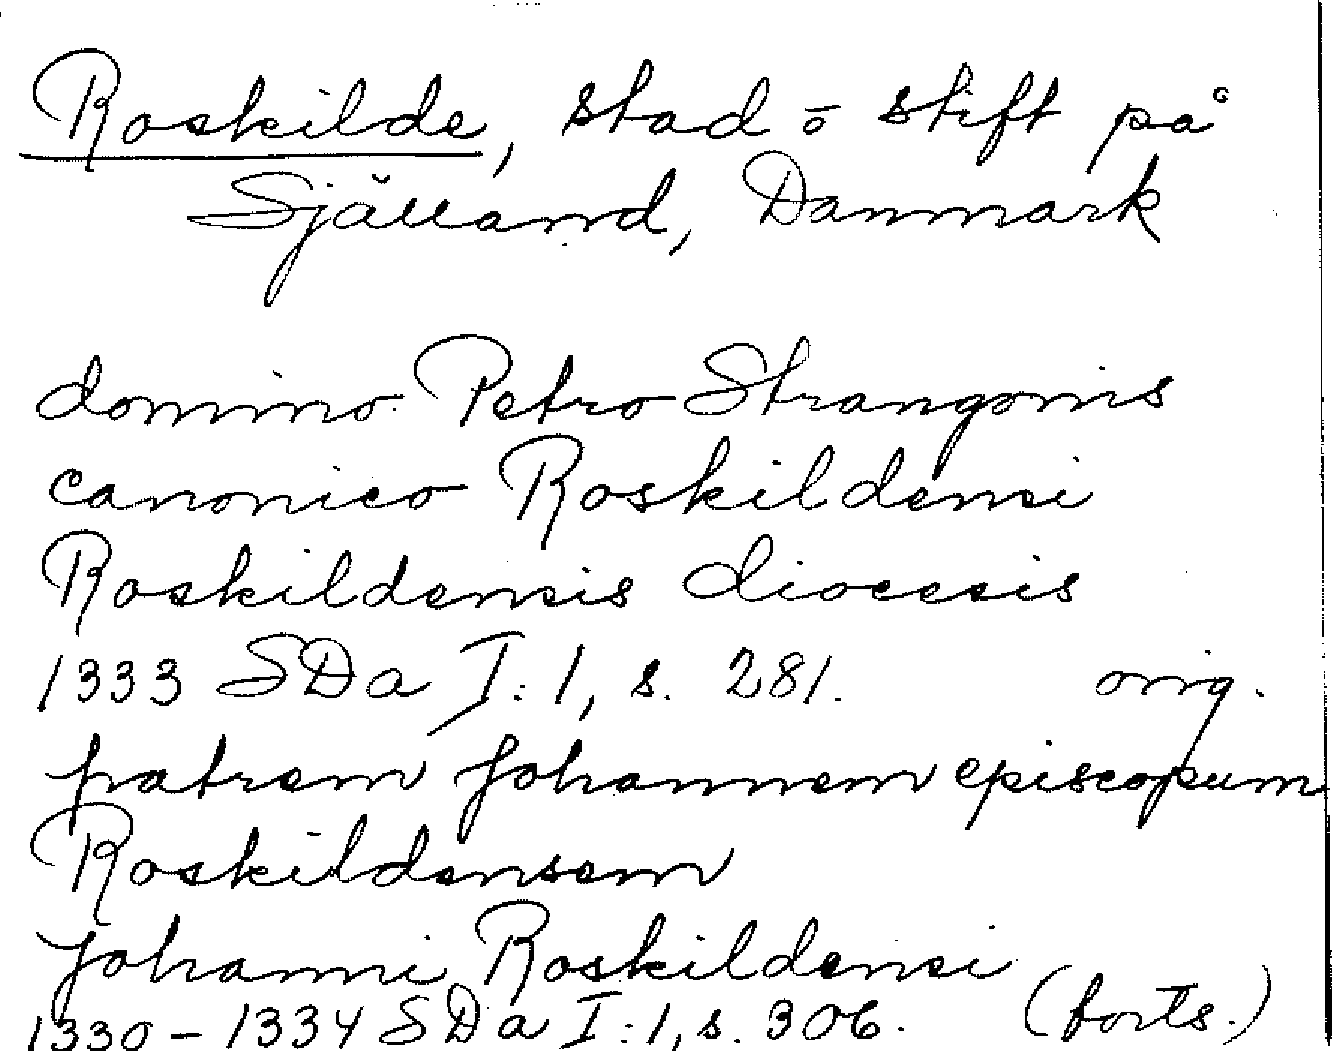 Roskilde, stad o stift på
Själland, Danmark
domino Petro Strangonis
canonico Roskildensi
Roskildensis diocesis
1333 SDa I:1, s. 281. orig.
fratrem Johannem episcopum
Roskildensem
Johanni Roskildensi
1330-1334 SDa I:1, s. 306. (forts.)